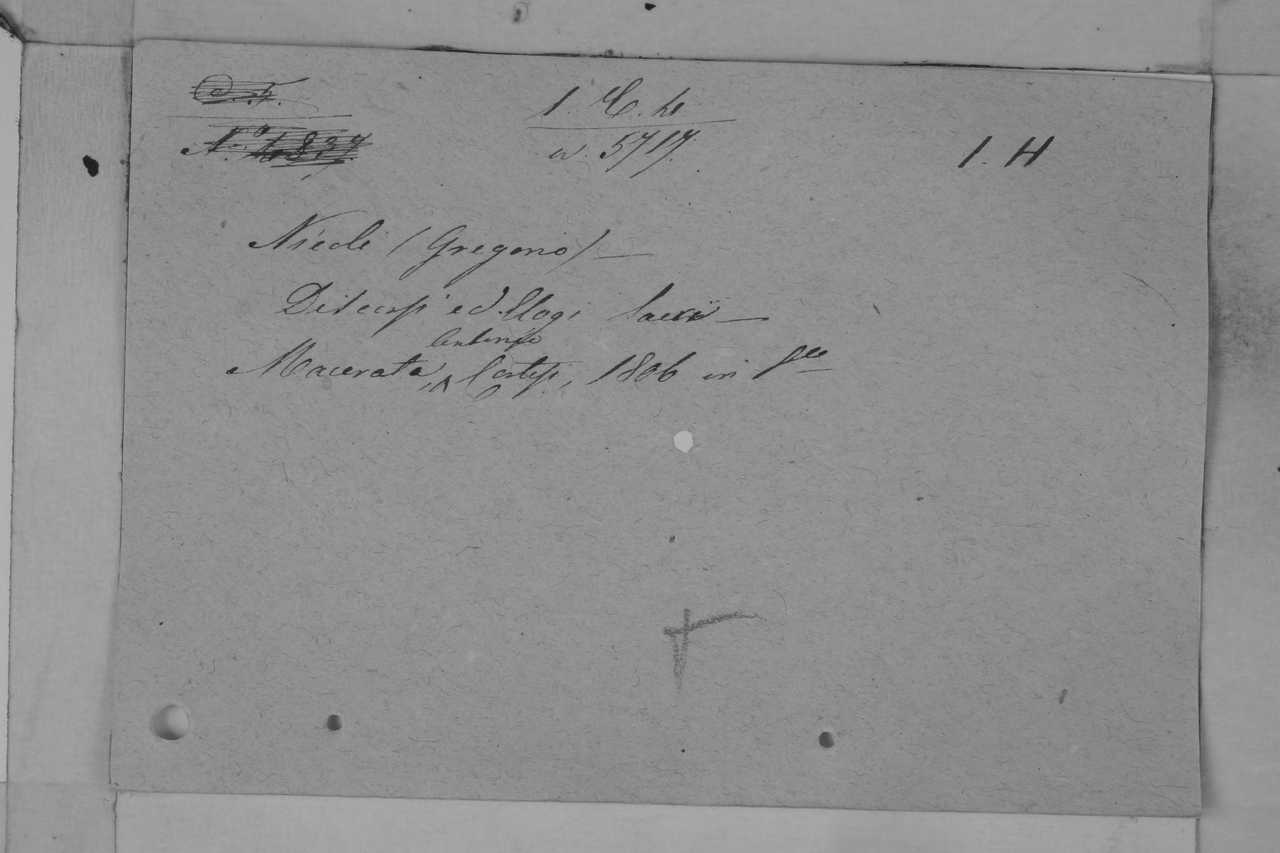 1. C. h
n. 5717.
1. H
Nicoli (Gregorio) —
Discorsi ed Elogi Sacri —
Macerata, Antonio Cortesi, 1806 in 8vo